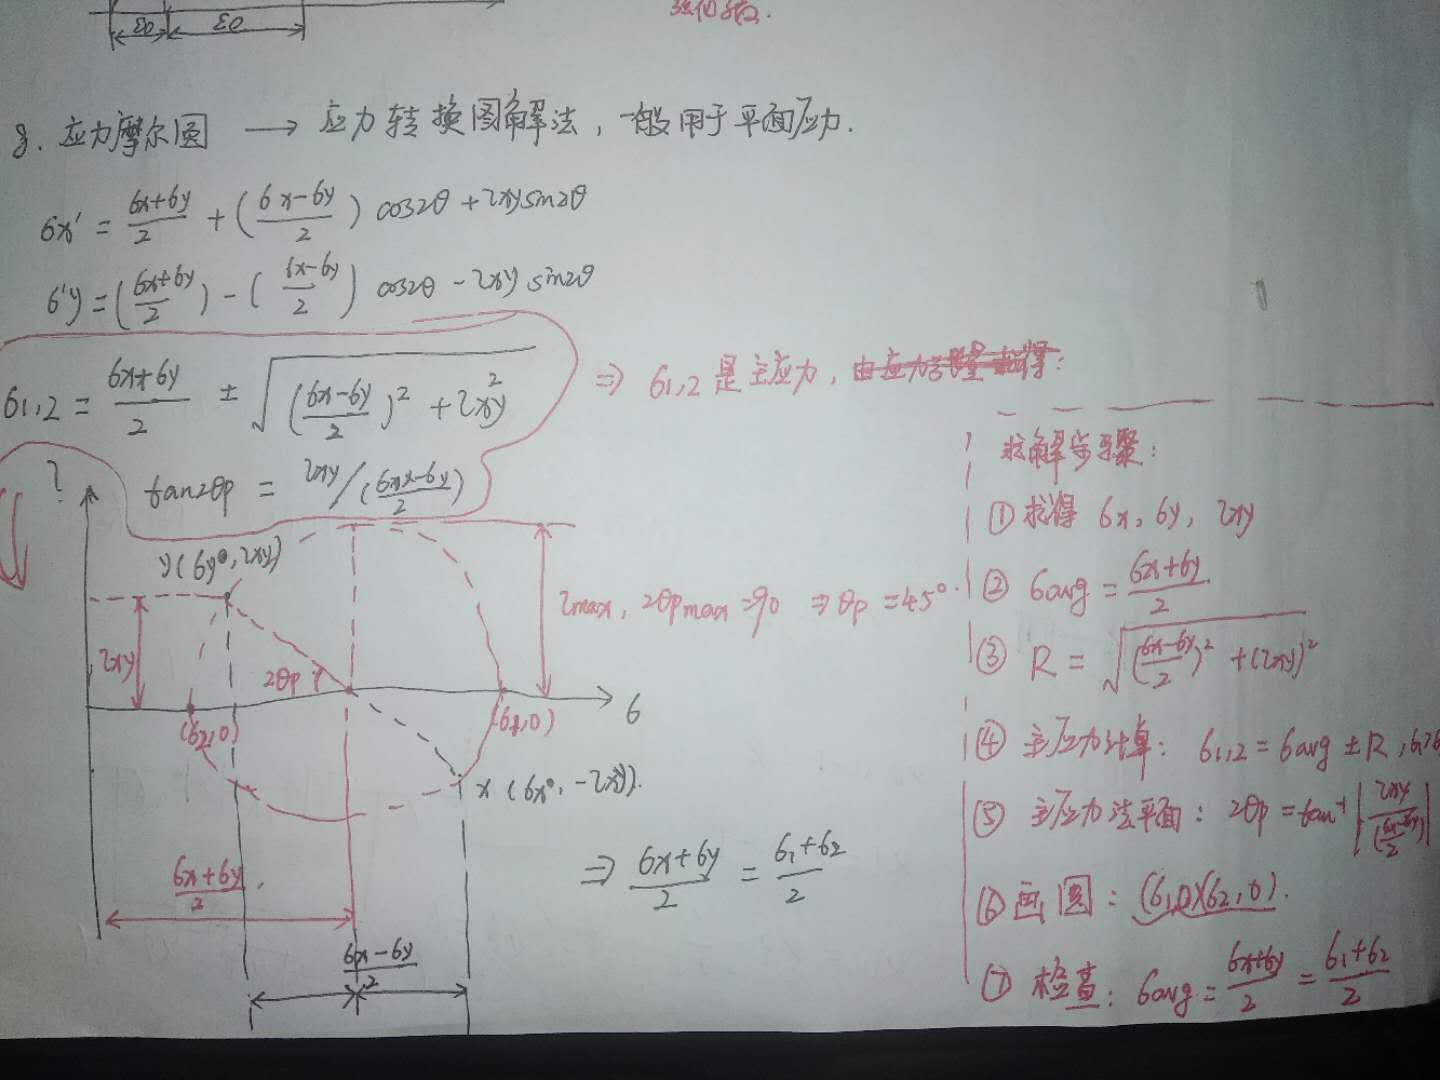 εο εο
8. 应力摩尔圆 → 应力转换图解法，一般用于平面应力.
σx' = (σx+σy)/2 + ((σx-σy)/2) cos2θ + τxy sin2θ
σ'y = ((σx+σy)/2) - ((σx-σy)/2) cos2θ - τxy sin2θ
σ1,2 = (σx+σy)/2 ± √(((σx-σy)/2)² + τxy²) ⇒ σ1,2 是主应力，
tan2θp = τxy/((σx-σy)/2)
τ
y(σy, τxy)
τxy
2θp
(σ2,0)
(σ1,0)
σ
x (σx, -τxy).
τmax, 2θpmax=90 ⇒ θp = 45°.
(σx+σy)/2
(σx-σy)/2
⇒ (σx+σy)/2 = (σ1+σ2)/2
求解步骤：
① 求得 σx, σy, τxy
② σavg = (σx+σy)/2
③ R = √(((σx-σy)/2)² + (τxy)²)
④ 主应力计算： σ1,2 = σavg ± R,
⑤ 主应力法平面： 2θp = tan⁻¹ |τxy/((σx-σy)/2)|
⑥ 画圆： (σ1,0)(σ2,0).
⑦ 检查： σavg = (σx+σy)/2 = (σ1+σ2)/2